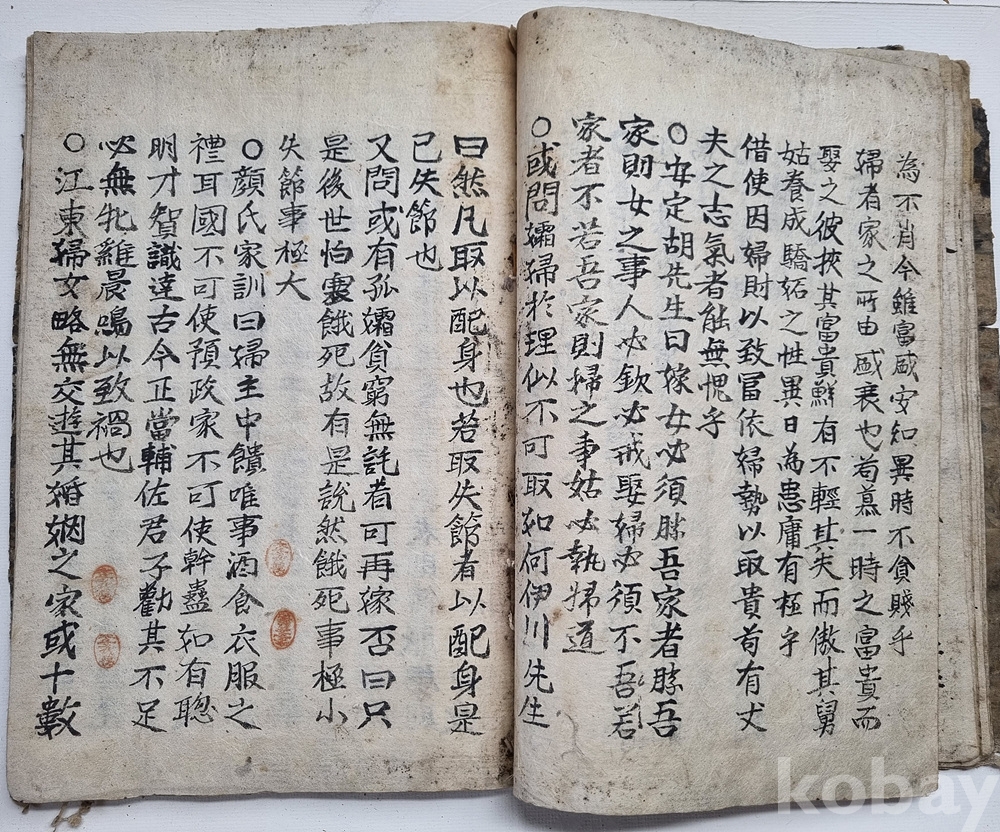 為不肖今雖富盛安知異時不貧賤乎
婦者家之所由盛衰也苟慕一時之富貴而
娶之彼挾其富貴鮮有不輕其夫而傲其舅
姑養成驕妬之性異日為患庸有極乎
借使因婦財以致冨依婦勢以取貴苟有丈
夫之志氣者能無愧乎
○安定胡先生曰嫁女必須勝吾家者勝吾
家則女之事人必欽必戒娶婦必須不吾若
家者不若吾家則婦之事姑必執婦道
○或問孀婦於理似不可取如何伊川先生
曰然凡取以配身也若取失節者以配身是
已失節也
又問或有孤孀貧窮無託者可再嫁否曰只
是後世怕寒餓死故有是說然餓死事極小
失節事極大
○顔氏家訓曰婦主中饋唯事酒食衣服之
禮耳國不可使預政家不可使幹蠱如有聦
明才智識達古今正當輔佐君子勸其不足
必無牝雞晨鳴以致禍也
○江東婦女略無交遊其婚姻之家或十數
kobay